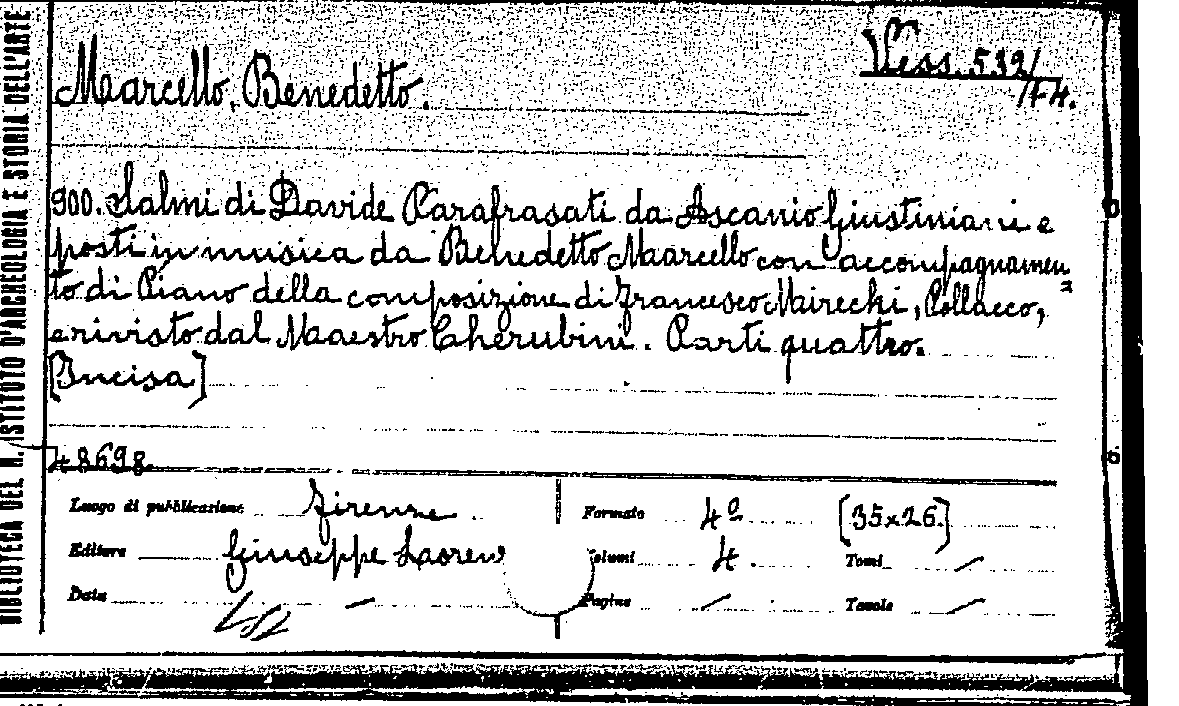 BIBLIOTECA DEL R. ISTITUTO D'ARCHEOLOGIA E STORIA DELL'ARTE
Vess. 539/
174.
Marcello, Benedetto.
900. Salmi di Davide Parafrasati da Ascanio Giustiniani e
posti in musica da Benedetto Marcello con accompagnamen
to di Piano della composizione di Francesco Mirechi, Pollacco,
e rivisto dal Maestro Cherubini. Parti quattro.
[Incisa]
48698
Luogo di pubblicazione Firenze Formato 4º [35x26]
Editore Giuseppe Loren Volumi 4. Tomi /
Data / Pagine / Tavole /